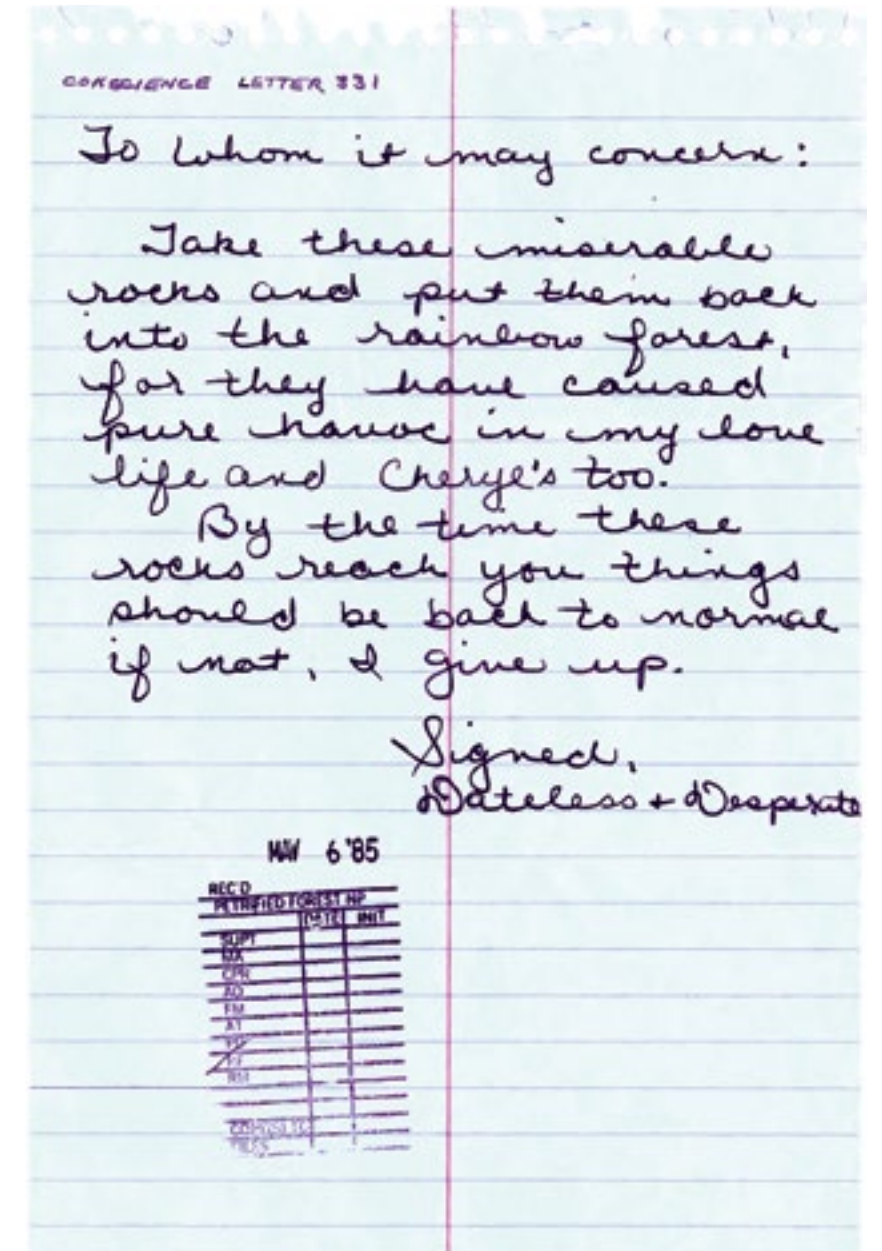 CONSCIENCE LETTER 331
To Whom it may concern:
Take these miserable
rocks and put them back
into the rainbow forest,
for they have caused
pure havoc in my love
life and Cheryl's too.
By the time these
rocks reach you things
should be back to normal
if not, I give up.
Signed,
Dateless + Desperate
MAY 6 '85
REC'D
PETRIFIED FOREST NP
DATE INIT
SUPT
CPR
AO
FM
AT
RM
FILES